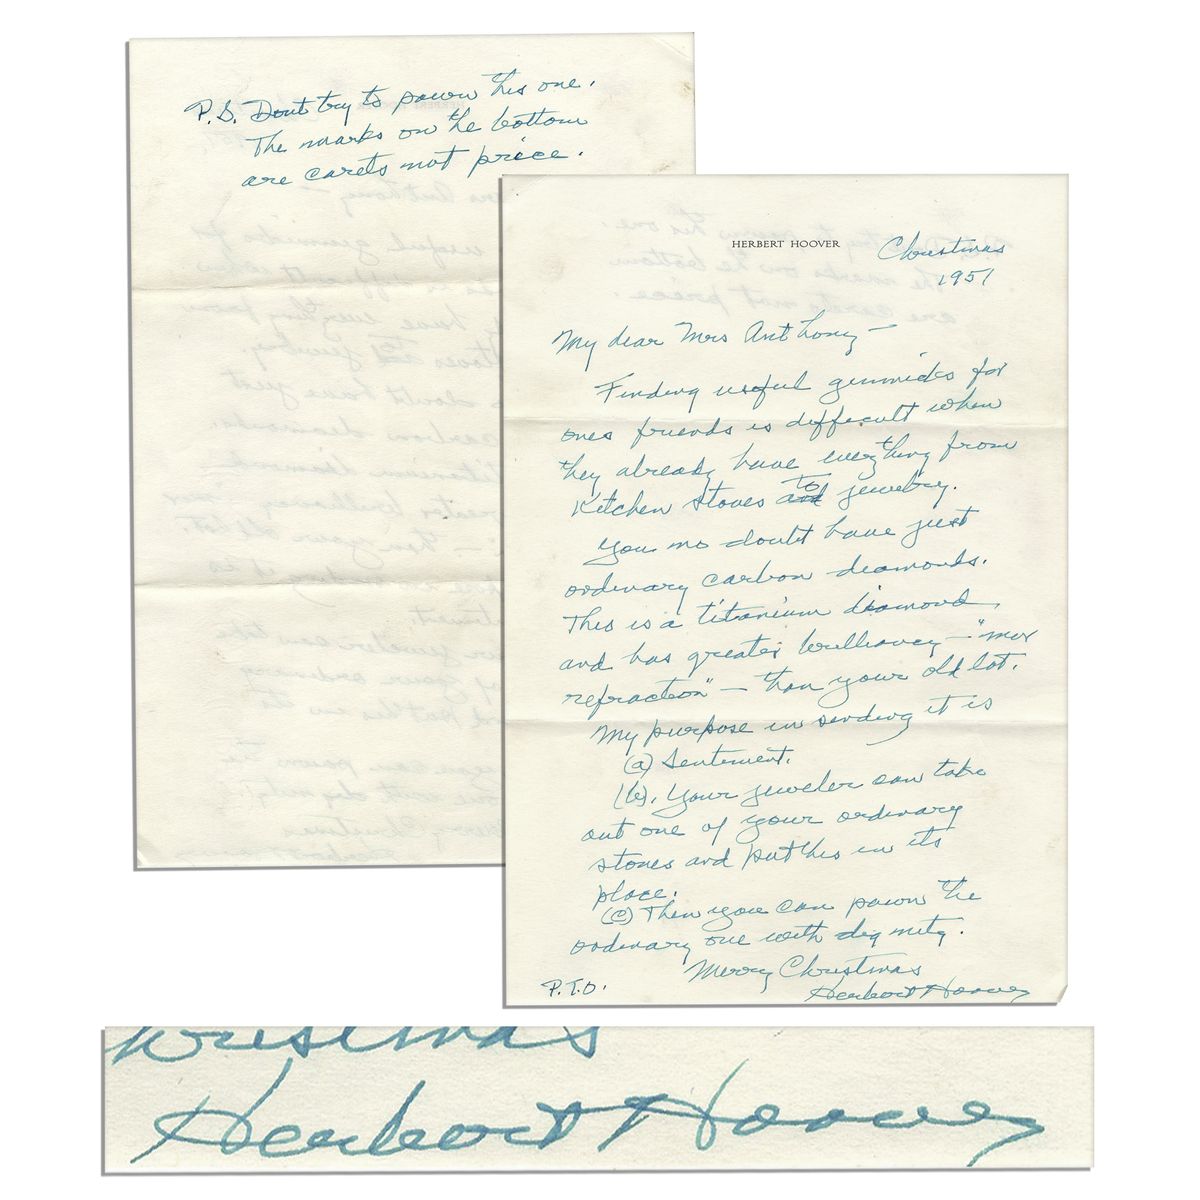 P.S. Dont try to pawn this one.
The marks on the bottom
are carets not price.
HERBERT HOOVER
Christmas
1951
My dear Mrs Anthony —
Finding useful gimmicks for
ones friends is difficult when
they already have everything from
Kitchen Stoves to jewelry.
You no doubt have just
ordinary carbon diamonds.
This is a titanium diamond
and has greater brilliancy — "mor
refraction" — than your old lot.
My purpose in sending it is
(a) Sentiment.
(b). Your jeweler can take
out one of your ordinary
stones and put this in its
place.
(c) Then you can pawn the
ordinary one with dignity.
Merry Christmas
Herbert Hoover
P.T.O.
hristmas
Herbert Hoover